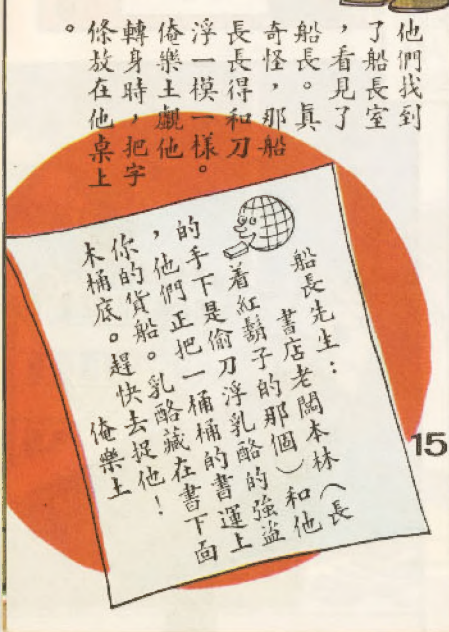 他們找到
了船長室
，看見了
船長。真
奇怪，那船
長長得和刀
浮一模一樣。
俺樂土覷他
轉身時，把字
條放在他桌上
。
船長先生：
書店老闆本林（長
着紅鬍子的那個）和他
的手下是偷刀浮乳酪的強盜
，他們正把一桶桶的書運上
你的貨船。乳酪藏在書下面
木桶底。趕快去捉他！
俺樂土
15